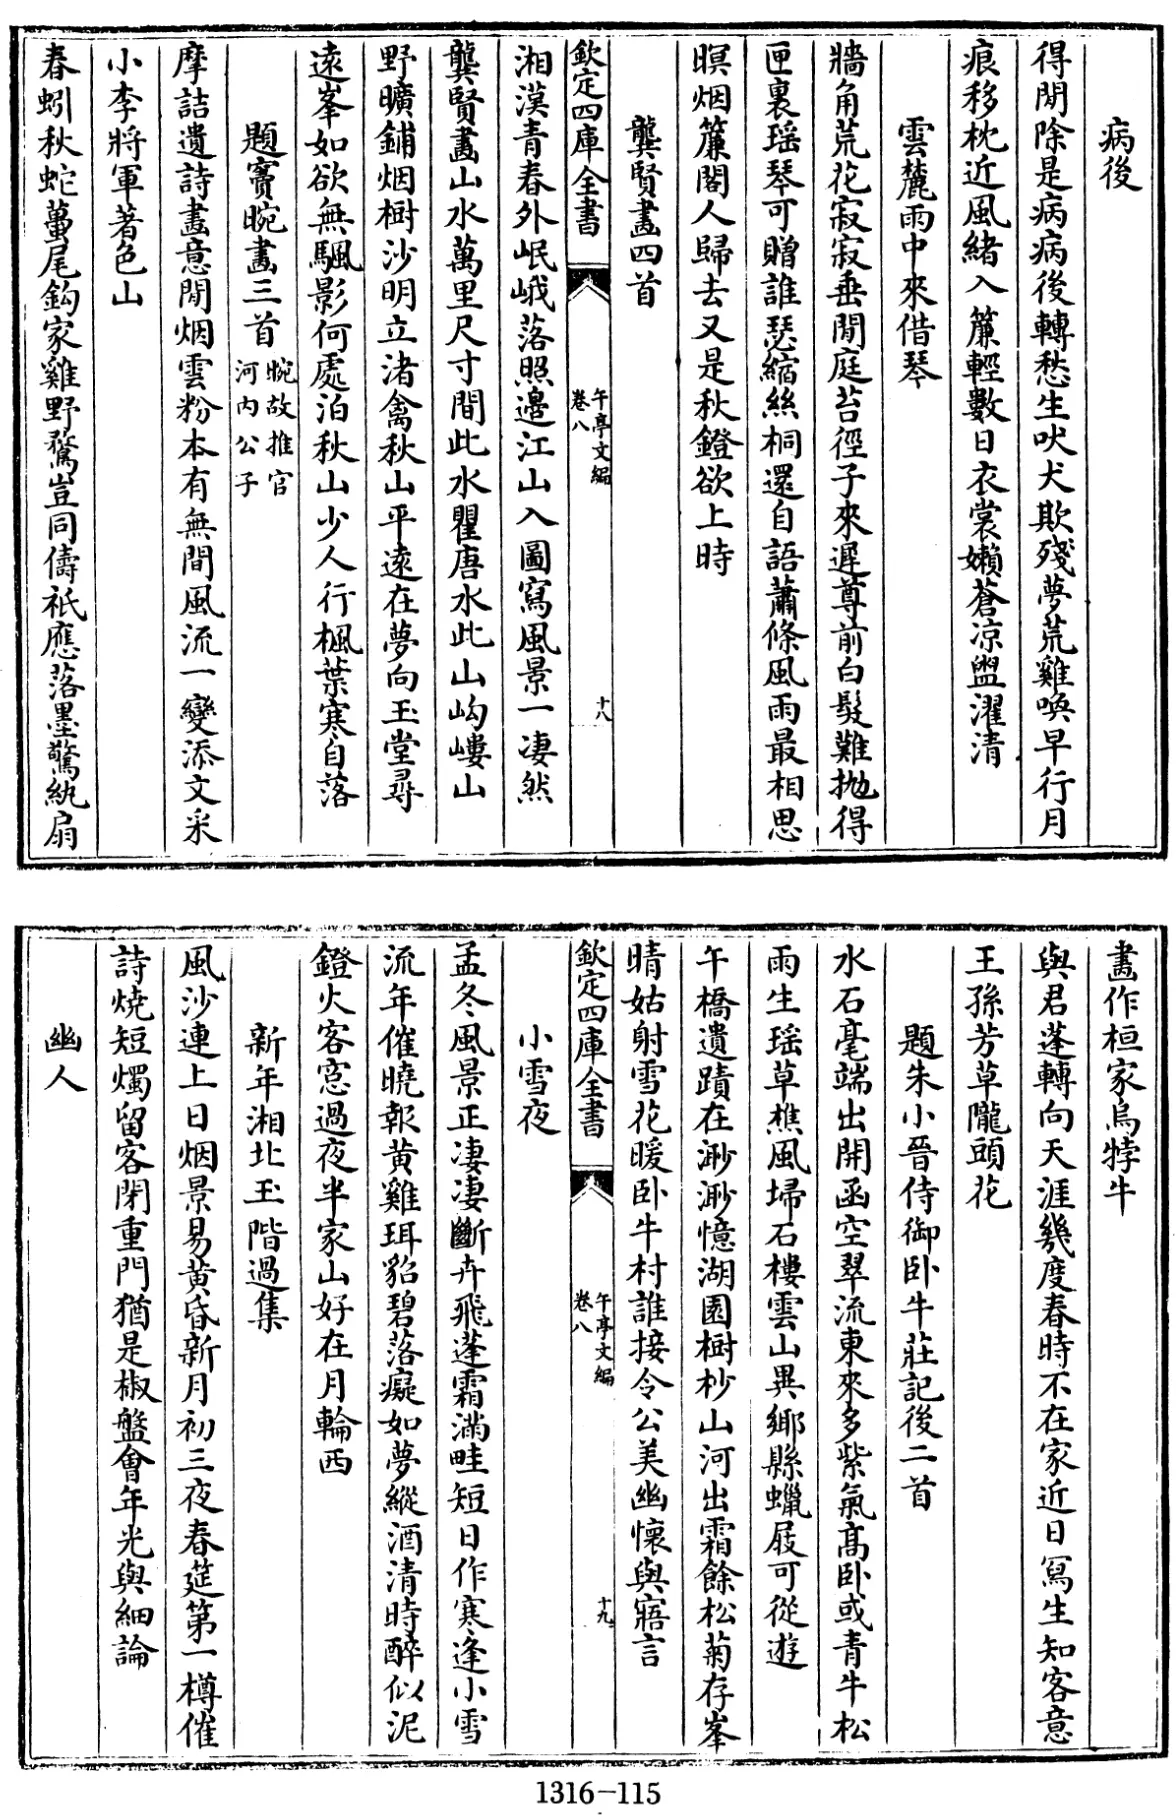 病後
得閒除是病病後轉愁生吠犬欺殘夢荒雞喚早行月
痕移枕近風緒入簾輕數日衣裳嬾蒼凉盥濯清
雲麓雨中來借琴
牆角荒花寂寂垂閒庭苔徑子來遲尊前白髮難拋得
匣裏瑶琴可贈誰瑟縮絲桐還自語蕭條風雨最相思
暝烟簾閣人歸去又是秋鐙欲上時
龔賢畫四首
欽定四庫全書
午亭文編
卷八
十八
湘漢青春外岷峨落照邊江山入圖寫風景一凄然
龔賢畫山水萬里尺寸間此水瞿唐水此山岣嶁山
野曠鋪烟樹沙明立渚禽秋山平遠在夢向玉堂尋
遠峯如欲無颿影何處泊秋山少人行楓葉寒自落
題賽晼畫三首
晼故推官
河内公子
摩詰遺詩畫意閒烟雲粉本有無間風流一變添文采
小李將軍著色山
春蚓秋蛇蠆尾鈎家雞野鶩豈同儔祇應落墨驚紈扇
畫作桓家烏㹀牛
與君蓬轉向天涯幾度春時不在家近日寫生知客意
王孫芳草隴頭花
題朱小晉侍御卧牛莊記後二首
水石毫端出開函空翠流東來多紫氣高卧或青牛松
雨生瑶草樵風埽石樓雲山異鄉縣蠟屐可從遊
午橋遺蹟在渺渺憶湖園樹杪山河出霜餘松菊存峯
晴姑射雪花暖卧牛村誰接令公美幽懷與寤言
欽定四庫全書
午亭文編
卷八
十九
小雪夜
孟冬風景正凄凄斷卉飛蓬霜滿畦短日作寒逢小雪
流年催曉報黄雞珥貂碧落癡如夢縱酒清時醉似泥
鐙火客窓過夜半家山好在月輪西
新年湘北玉階過集
風沙連上日烟景易黄昏新月初三夜春筵第一樽催
詩燒短燭留客閉重門猶是椒盤會年光與細論
幽人
1316-115